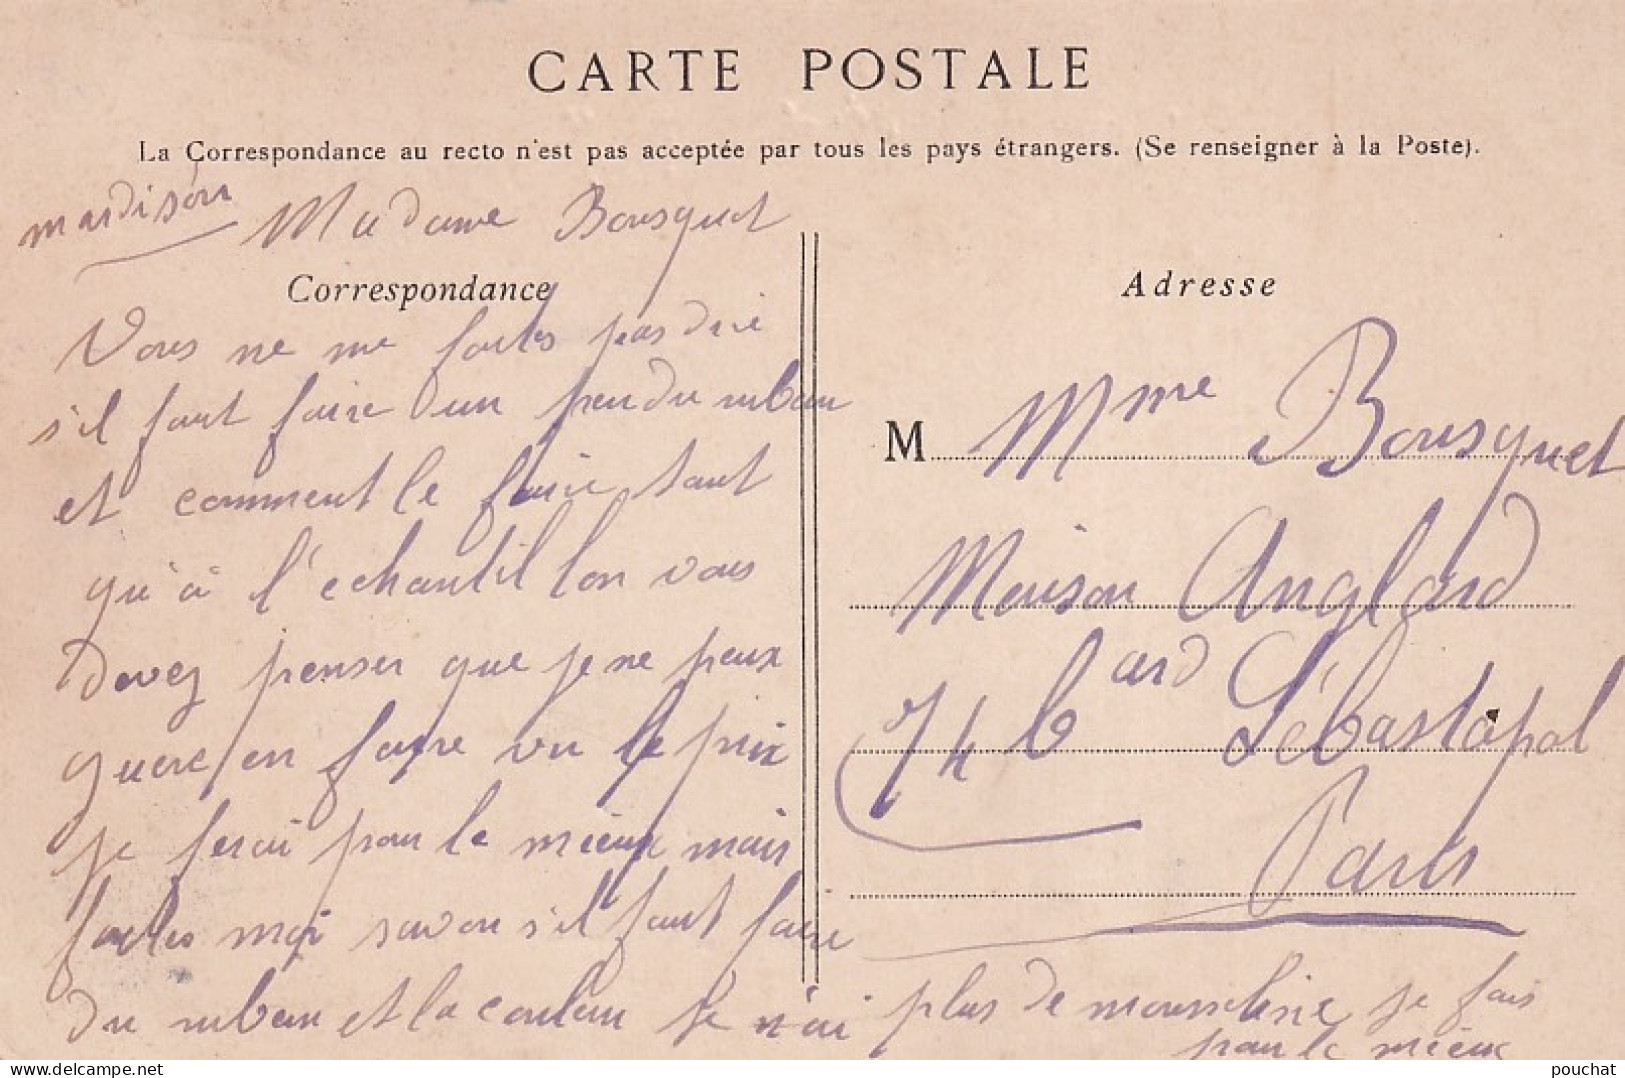 CARTE POSTALE
La Correspondance au recto n'est pas acceptée par tous les pays étrangers. (Se renseigner à la Poste).
Madame Bousquet
Correspondance
Vous ne me faites pas dire
s'il faut faire un peu du ruban
et comment le faire tant
qu'à l'echantillon vous
Devez penser que je ne peux
guere en faire vu le prix
je ferai pour le mieux mais
faites moi savoir s'il faut faire
du ruban et la couleur je n'ai
plus de mousseline je fais
pour le mieux
Adresse
M Mme Bousquet
Maison Anglard
74 bard Sébastopol
Paris
delcampe.net
pouchat